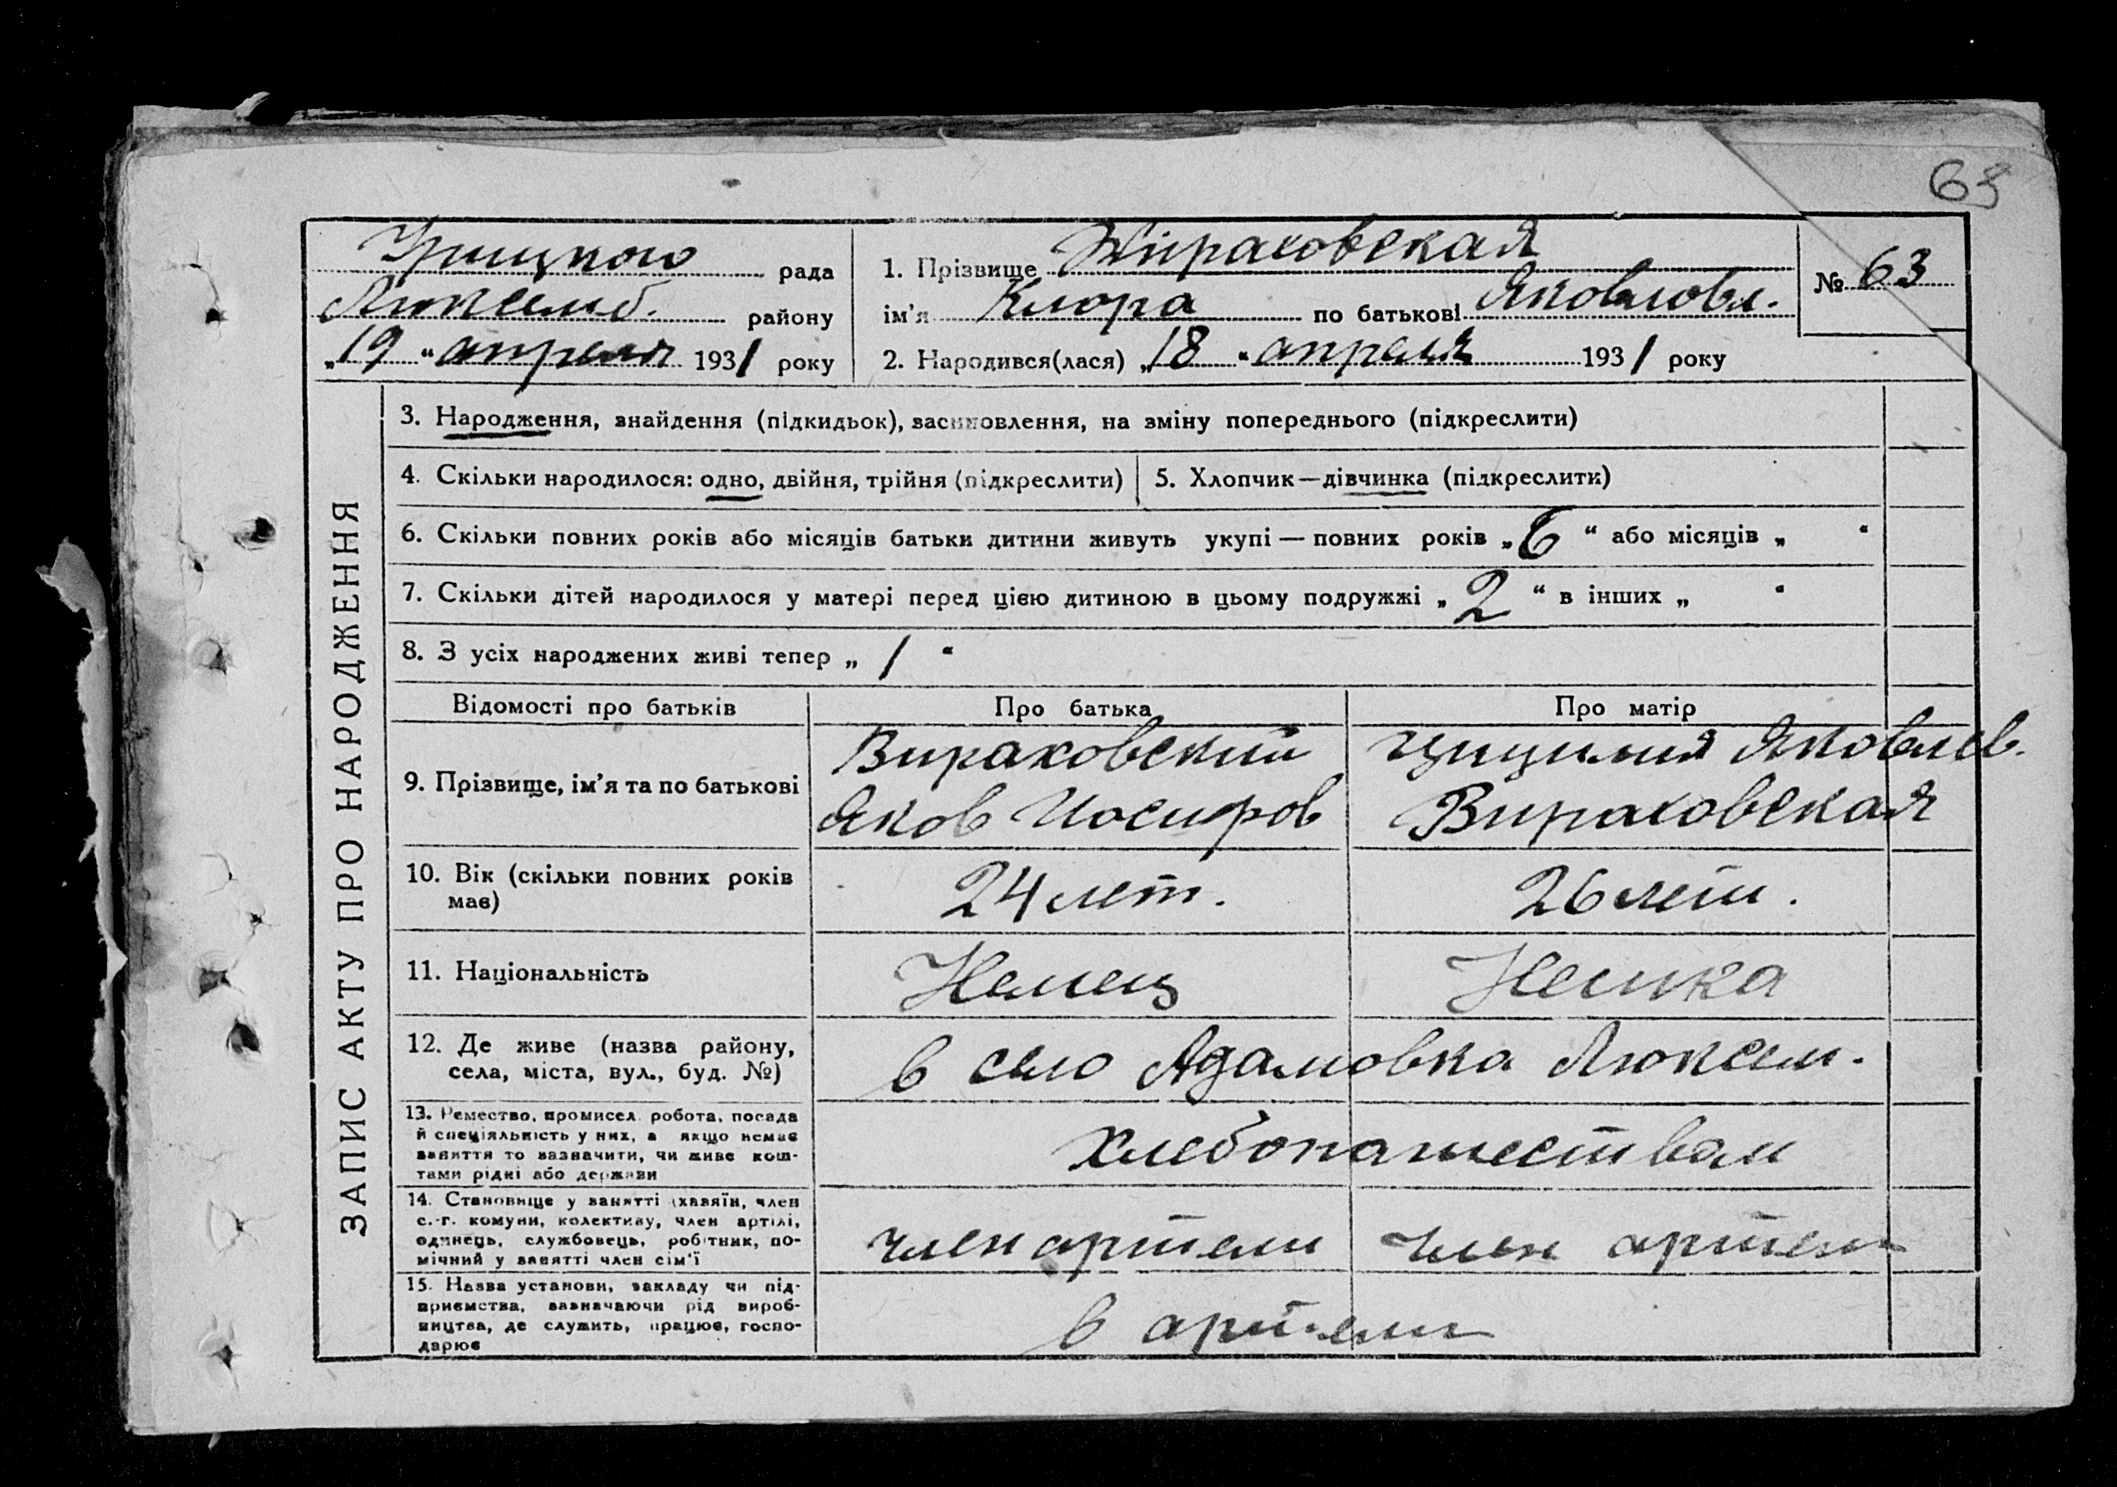 63
Урицкого рада
Люксемб. району
„19“ апреля 1931 року
1. Прізвище Вираховская
ім'я Клора по батькові Яковловл.
2. Народився(лася) „18“ апреля 1931 року
№ 63
ЗАПИС АКТУ ПРО НАРОДЖЕННЯ
3. Народження, знайдення (підкидьок), засиновлення, на зміну попереднього (підкреслити)
4. Скільки народилося: одно, двійня, трійня (підкреслити)
5. Хлопчик—дівчинка (підкреслити)
6. Скільки повних років або місяців батьки дитини живуть укупі — повних років „6“ або місяців „ “
7. Скільки дітей народилося у матері перед цією дитиною в цьому подружжі „2“ в інших „ “
8. З усіх народжених живі тепер „1“
Відомості про батьків Про батька Про матір
9. Прізвище, ім'я та по батькові
Вираховский
Яков Иосифов
Цицилия Яковлев.
Вираховская
10. Вік (скільки повних років
має)
24 лет. 26 лет.
11. Національність Немец Немка
12. Де живе (назва району,
села, міста, вул., буд. №)
в село Адамовка Люксем.
13. Ремество, промисел, робота, посада
й спеціяльність у них, а якщо немає
заняття то зазначити, чи живе кош-
тами рідні або держави
хлебопашеством
14. Становище у занятті (хазяїн, член
с.-г. комуни, колективу, член артілі,
одинець, службовець, робітник, по-
мічний у занятті член сім'ї
член артели член артели
15. Назва установи, закладу чи під-
приємства, зазначаючи рід вироб-
ництва, де служить, працює, госпо-
дарює
в артели